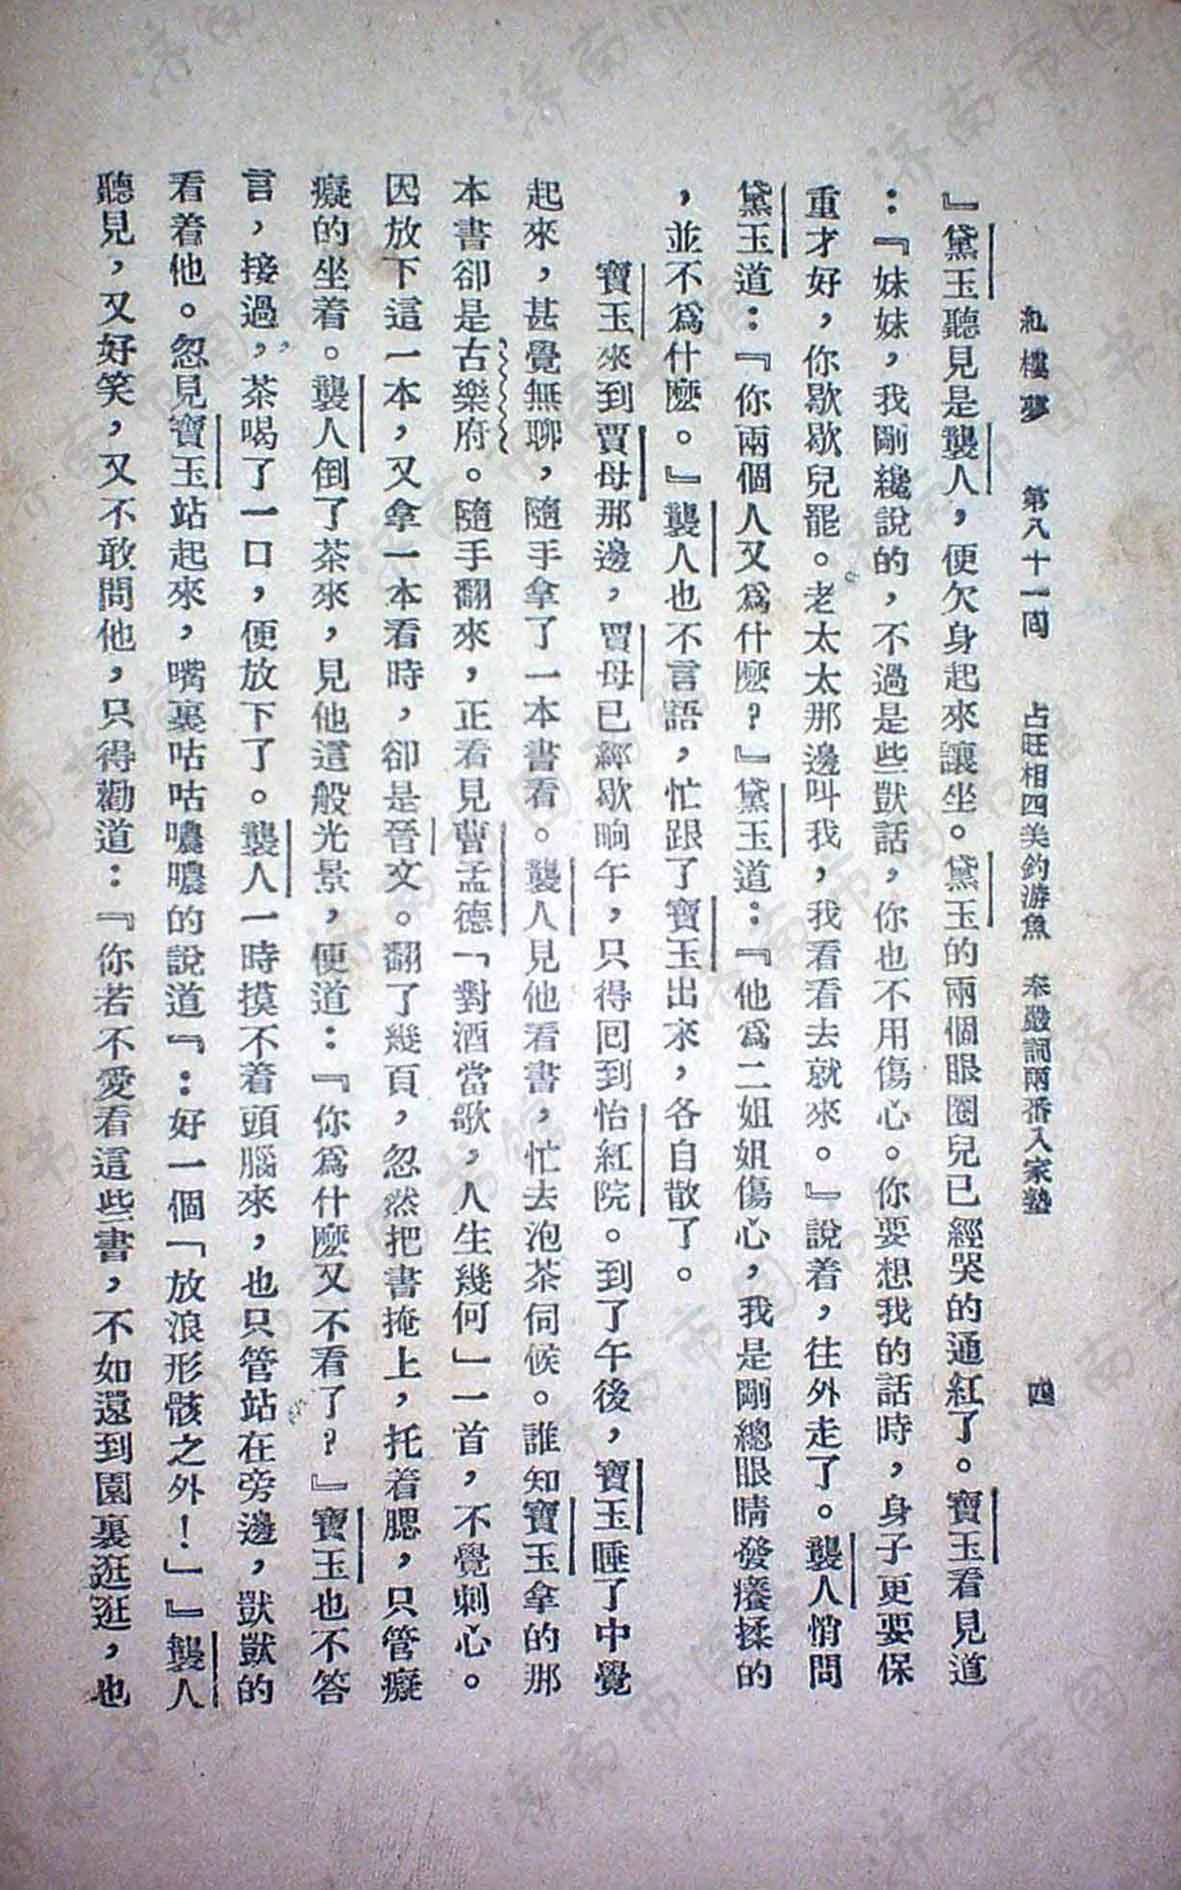 紅樓夢　第八十一回　占旺相四美釣游魚　奉嚴詞兩番入家塾　四
』黛玉聽見是襲人，便欠身起來讓坐。黛玉的兩個眼圈兒已經哭的通紅了。寶玉看見道
：『妹妹，我剛纔說的，不過是些獃話，你也不用傷心。你要想我的話時，身子更要保
重才好，你歇歇兒罷。老太太那邊叫我，我看看去就來。』說着，往外走了。襲人悄問
黛玉道：『你兩個人又爲什麼？』黛玉道：『他爲二姐姐傷心，我是剛總眼睛發癢揉的
，並不爲什麼。』襲人也不言語，忙跟了寶玉出來，各自散了。
寶玉來到賈母那邊，賈母已經歇晌午，只得回到怡紅院。到了午後，寶玉睡了中覺
起來，甚覺無聊，隨手拿了一本書看。襲人見他看書，忙去泡茶伺候。誰知寶玉拿的那
本書卻是古樂府。隨手翻來，正看見曹孟德「對酒當歌，人生幾何」一首，不覺刺心。
因放下這一本，又拿一本看時，卻是晉文。翻了幾頁，忽然把書掩上，托着腮，只管癡
癡的坐着。襲人倒了茶來，見他這般光景，便道：『你爲什麼又不看了？』寶玉也不答
言，接過，茶喝了一口，便放下了。襲人一時摸不着頭腦來，也只管站在旁邊，獃獃的
看着他。忽見寶玉站起來，嘴裏咕咕噥噥的說道『：好一個「放浪形骸之外！」』襲人
聽見，又好笑，又不敢問他，只得勸道：『你若不愛看這些書，不如還到園裏逛逛，也
濟南市图书馆